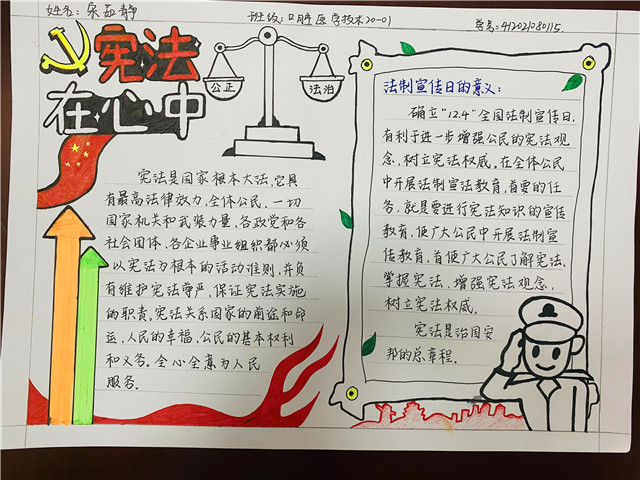 姓名：宋孟静
班级：口腔医学技术20-01
学号：412021080115.
宪法
在心中
公正
法治
宪法是国家根本大法，它具
有最高法律效力，全体公民，一切
国家机关和武装力量、各政党和各
社会团体、各企业事业组织都必须
以宪法为根本的活动准则，并负
有维护宪法尊严、保证宪法实施
的职责，宪法关系国家的前途和命
运，人民的幸福，公民的基本权利
和义务。全心全意为人民
服务。
法制宣传日的意义：
确立“12.4”全国法制宣传日，
有利于进一步增强公民的宪法观
念，树立宪法权威，在全体公民
中开展法制宣法教育，首要的任
务，就是要进行宪法知识的宣传
教育，使广大公民中开展法制宣
传教育，首使广大公民了解宪法、
掌握宪法，增强宪法观念，
树立宪法权威。
宪法是治国安
邦的总章程。